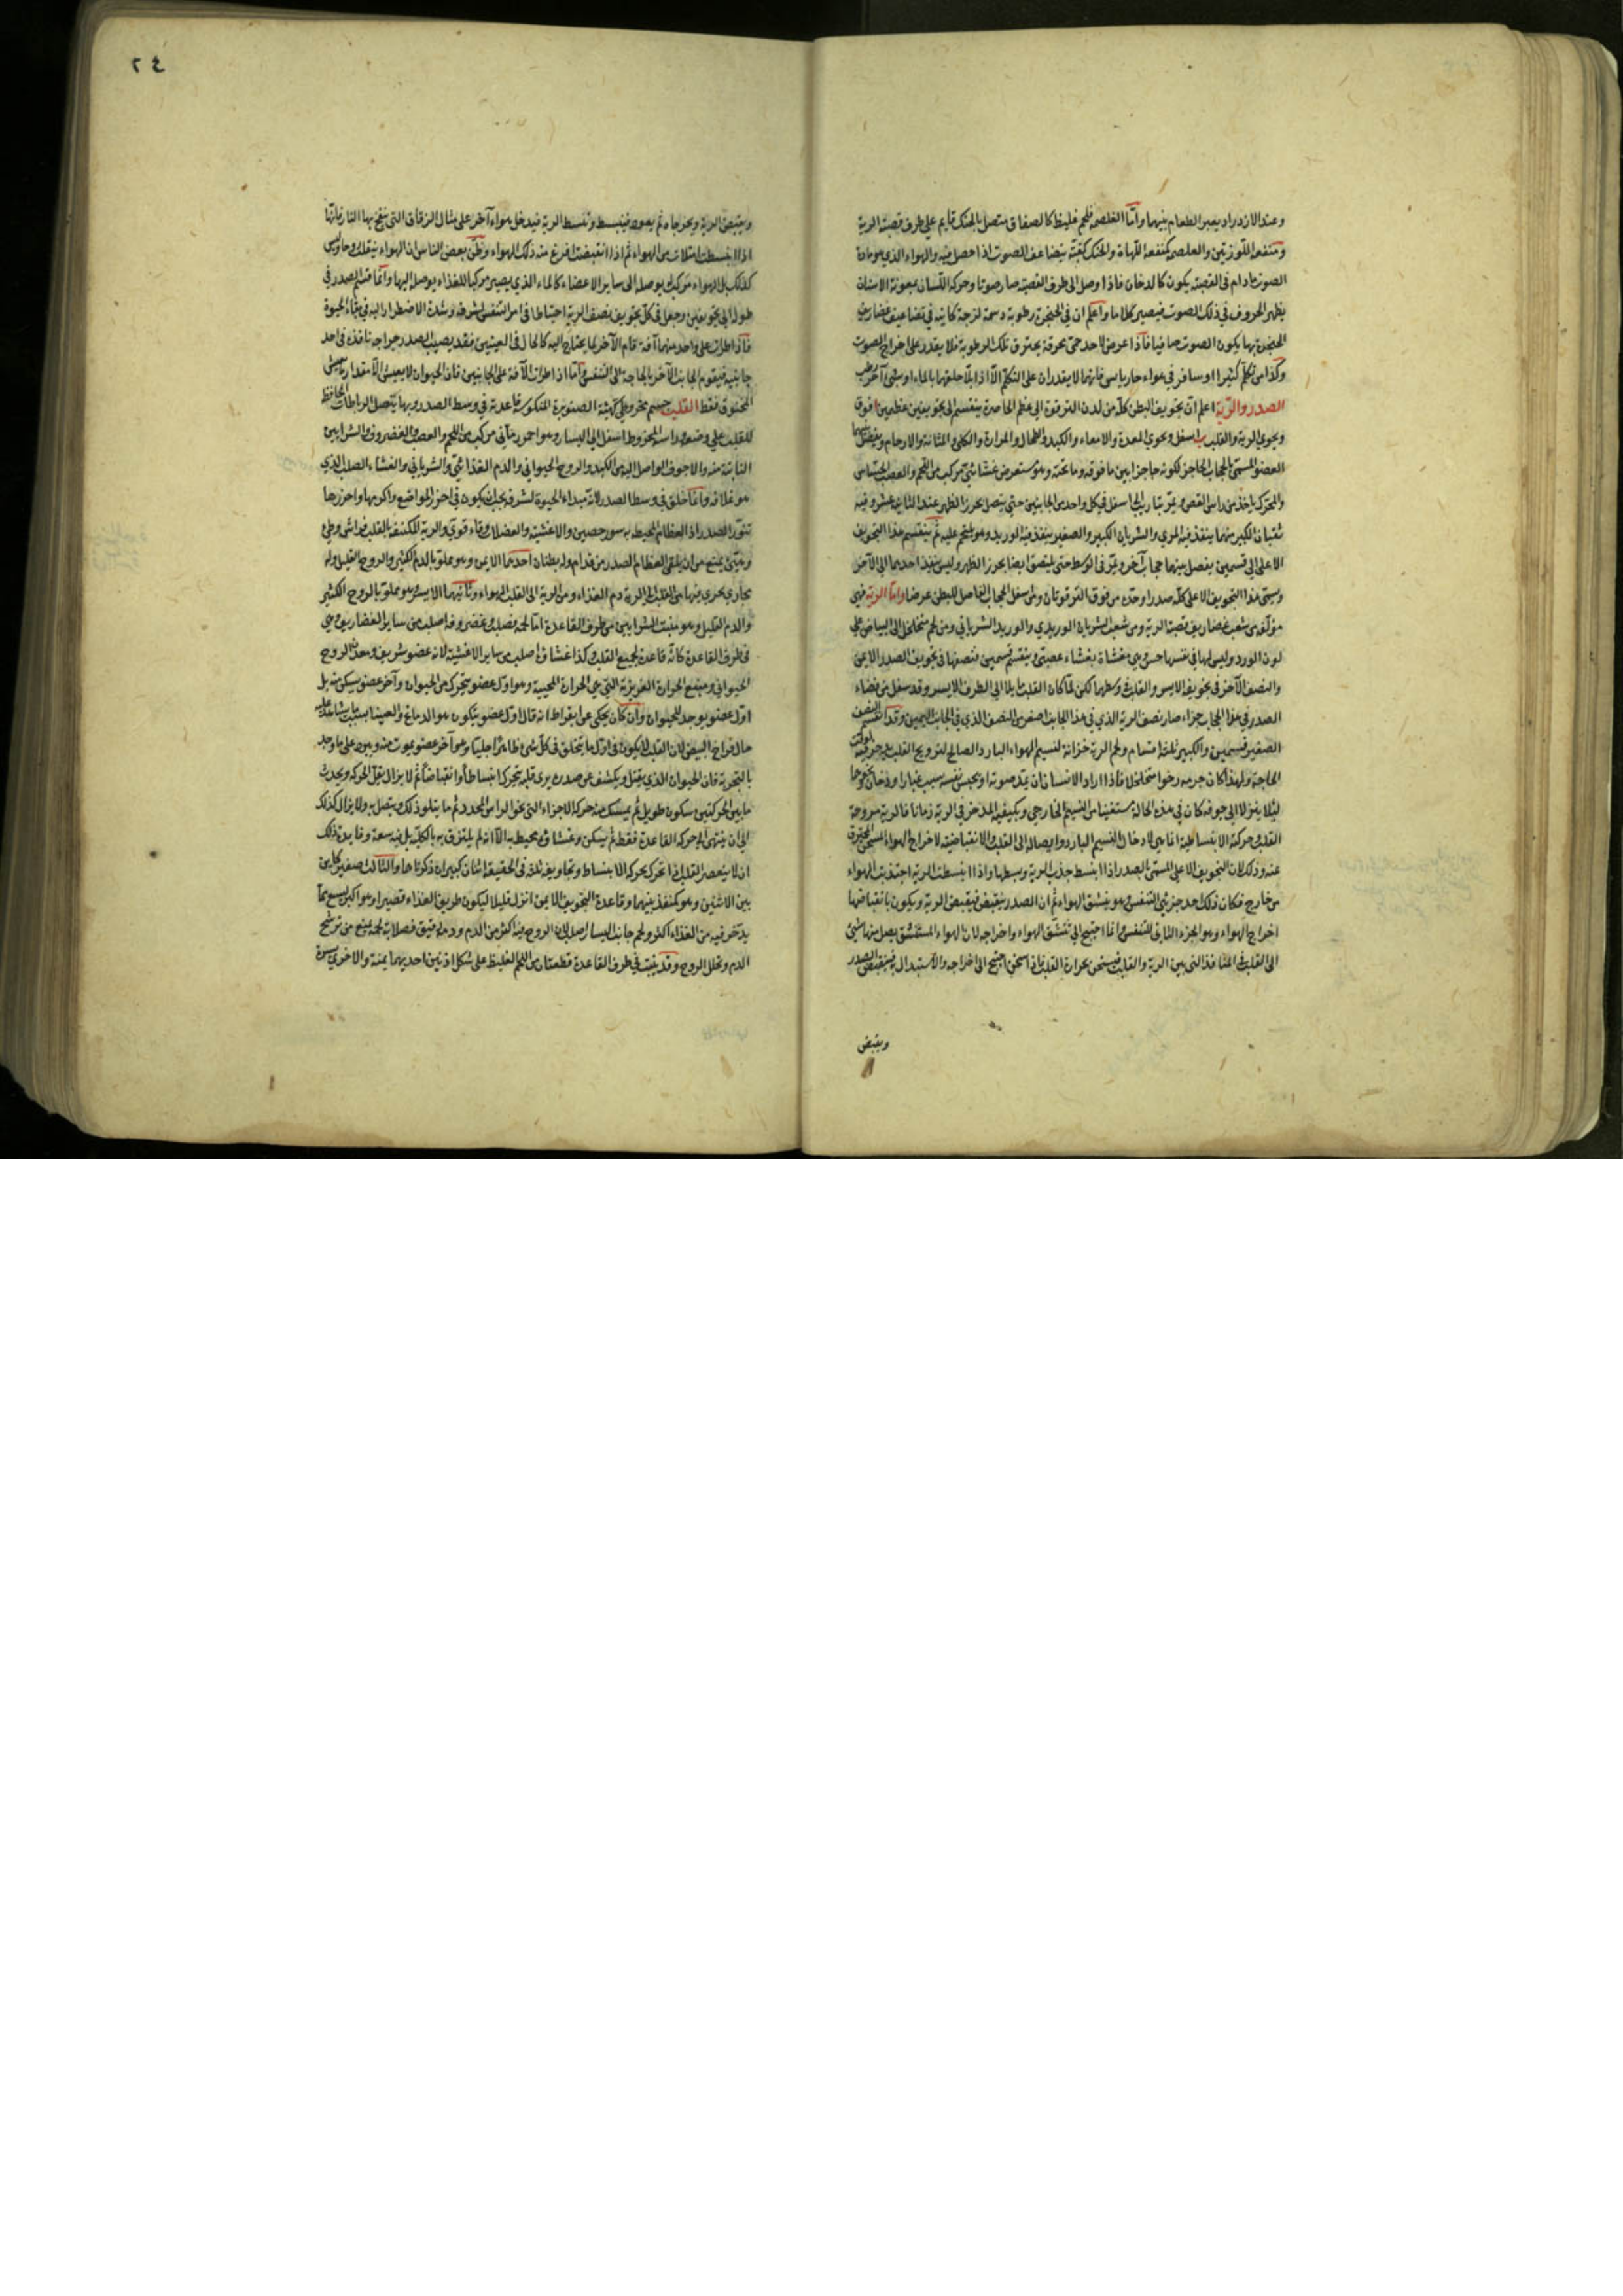 وعند الازدراد يعبر الطعام بينهما وامّا الغلصمة فلحم غليظ كالصفاق متصل بالحنك قايم على طرف قصبة الرية
ومنفعة اللّوزتين والغلصمه كمنفعة اللّهاة والحنك كقبّة يتضاعف الصوت اذا حصل فيه والهواء الذي هو مادة
الصوت مادام فى القصبة يكون كالدخان فاذا وصل الى طرف القصبة صار صوتا وحركة اللّسان بمعونة الاسنان
يظهر الحروف في ذلك الصوت فيصير كلاما واعلم ان في الحنجرة رطوبة دسمة لزجة كاينة في تضاعيف غضاريف
الحنجرة بها يكون الصوت صافيا فاذا عرض لاحد حمّى محرقة يحترق تلك الرطوبة فلا يقدر على اخراج الصوت
وكذا من تكلّم كثيرا او سافر في هواء حار يابس فانهما لا يقدران على التكلّم الّا اذا بلّا حلقهما بالماء او بشئ آخر رطب
الصدر والرّية اعلم انّ تجويف البطن كلّه من لدن الترقوة الى عظم الخاصرة ينقسم الى تجويفين عظيمين ا فوق
ويحوي الرية والقلب ب اسفل ويحوي المعدة والامعاء والكبد والطحال والمرارة والكلى والمثانة والارحام ويفصل بينهما
العضو المسمّى بالحجاب الحاجز لكونه حاجزا بين ما فوقه وما تحته وهو مستعرض غشائىّ مركب من اللحم والعصب الحسّاس
والمحرّك ياخذ من راس القص ويمرّ بتاريب الى اسفل في كل واحد من الجانبين حتى يتصل بخرز الظهر عند الثانية عشر وفيه
ثقبان الكبير منهما ينفذ فيه المري والشريان الكبير والصغير ينفذ فيه الوريد وهو ملتحم عليه ثم ينقسم هذا التجويف
الاعلى الى قسمين يفصل بينهما حجاب آخر ويمرّ فى الوسط حتى يلتصق ايضا بخرز الظهر وليس ينفذ احدهما الى الآخر
ويسمّى هذا التجويف الاعلى كلّه صدرا وحدّه من فوق الترقوتان ومن اسفل الحجاب الفاصل للبطن عرضا وامّا الرية فهى
مؤلّفه من شعب غضاريف قصبة الرية ومن شعب الشريان الوريدي والوريد الشرياني ومن لحم متخلخل الى البياض على
لون الورد وليس لها في نفسها حسّ وهى مغشاة بغشاء عصبىّ وينقسم قسمين فنصفها فى تجويف الصدر الايمن
والنصف الآخر فى تجويف الايسر والقلب في وسطهما لكن لمّا كان القلب مايلا الى الطرف الايسر وقد شغل من فضاء
الصدر في هذا الجانب جزاء صار نصف الرية الذي فى هذا الجانب اصغر من النصف الذي فى الجانب اليمين وقد انقسم النصف
الصغير قسمين والكبير ثلثة اقسام ولحم الرية خزانة لنسيم الهواء البارد الصالح لترويح القلب يدخر فيه لوقت
الحاجة ولهذا كان جرمه رخوا متخلخلا فاذا اراد الانسان ان يمدّ صوته او يحبس نفسه بسبب غبار او دخان ونحوهما
ليلا ينزلا الى جوفه كان فى هذه الحالة مستغنيا من النسيم الخارجي ويكفيه المدخر فى الرية زمانا فالرية مروحة
القلب وحركة الانبساطية انما هي لادخال النسيم البارد وايصاله الى القلب والانقباضيّة لاخراج الهواء المسخن المحترق
عنه وذلك لان التجويف الاعلى المسمّى بالصدر اذا انبسط جذب الرية وبسطها واذا انبسطت الرية اجتذبت الهواء
من خارج فكان ذلك احد جزئى التنفس وهو ينشق الهواء ثم ان الصدر ينقبض فيقبض الرية ويكون بانقباضها
اخراج الهواء وهو الجزء الثانى للتنفس وانما احتيج الى تنشّق الهواء واخراجه لان الهواء المستنشق يصل منها شئ
الى القلب في المنافذ التى بين الرية والقلب فيسخن بحرارة القلب فاذا سخن احتيج الى اخراجه والاستبدال به فينقبض الصدر
ويقبض
٢٤
ويقبض الرية ويخرجاه ثم يعود فينبسط وتنبسط الرية فيدخل هواء آخر على مثال الزقاق التى ينفخ بها النار فانّها
اذا انبسطت امتلأت من الهواء ثم اذا انقبضت افرغ منه ذلك الهواء وظنّ بعض الناس ان الهواء ينقلب روحا وليس
كذلك بل الهواء مركب يوصله الى ساير الاعضاء كالماء الذي يصير مركبا للغذاء يوصله اليها وانّما قسم الصدر في
طوله الى تجويفين وجعل فى كل تجويف نصف الرية احتياطا فى امر التنفس لشرفه وشدة الاضطرار اليه في بقاء الحيوة
فاذا طرات على واحد منهما آفة قام الآخر بما يحتاج اليه كالحال فى العينين فقد يصيب الصدر جراحة نافذة فى احد
جانبيه فيقوم الجانب الآخر بالحاجة الى التنفس وامّا اذا طرات الآفة على الجانبين فان الحيوان لا يعيش الّا مقدار ما يعيش
المخنوق فقط القلب جسم مخروطي كهيئة الصنوبرة المنكوسه قاعدته في وسط الصدر وبها يتصل الرباطات الحافظة
للقلب على وضعه وراسه المخروط اسفل الى اليسار وهو احمر رمّانى مركب من اللحم والعصب والغضروف والشرايين
النابتة منه والاجوف الواصل اليه من الكبد والروح الحيواني والدم الغذائىّ والشرياني والغشاء الصلب الذي
هو غلافه وانّما خلق في وسط الصدر لانّه مبداء الحيوة لشرفه يجب ان يكون في احرز المواضع واكرمها واحرزها
تنّور الصدر اذ العظام المحيطة به سور حصين والاغشية والعضلات وقاء قوي والرية المكتنفة بالقلب فراش وطئ
وهيّن يمنع من ان يلقى العظام الصدر من قدّام وله بطنان احدهما الايمن وهو مملوّ بالدم الكثير والروح القليل وله
مجاري يجري منها من القلب الى الرية دم الغذاء ومن الرية الى القلب الهواء وثانيهما الايسر وهو مملوّ بالروح الكثير
والدم القليل وهو منبت الشرايين من طرف القاعدة امّا لحمه فصلب وغضروفه اصلب من ساير الغضاريف وهي
في طرف القاعدة كانّه قاعدة لجميع القلب وكذا غشاؤه اصلب من ساير الاغشية لانه عضو شريف ومعدن الروح
الحيواني ومنبع الحرارة الغريزية التي هي الحرارة المحيية وهو اول عضو يتحرك من الحيوان وآخر عضو يسكن منه بل
اوّل عضو يوجد للحيوان وان كان يحكى عن ابقراط انه قال اوّل عضو يتكون هو الدماغ والعينان بسبب ما يشاهد عليه
حال فراخ البيض لان القلب لا يكون فى اوّل ما يتخلق فى كلّ شئ ظاهرا جليا وهو آخر عضو يموت منه وبين على ما وجد
بالتجربة فان الحيوان الذي يقتل ويكشف عن صدره يرى قلبه يتحرك انبساطا وانقباضا ثم لا يزال يقل الحركة ويحدث
ما بين الحركتين سكون طويل ثم يمسك منه حركة الاجزاء التى نحو الراس المحدد ثم ما يتلو ذلك ويتصل به ولا يزال كذلك
الى ان ينتهى الى حركة القاعدة فقط ثم يسكن وغشاؤه محيط به الّا انه لم يلتزق به بالكليّه بل فيه سعة وفايدة ذلك
ان لا ينعصر القلب اذا تحرك بحركة الانبساط وتجاويفه ثلثة فى الحقيقة اثنان كبيران ذكرناهما والثالث صغير كاين
بين الاثنين وهو كمنفذ بينهما وقاعدة التجويف الايمن انزل قليلا ليكون طريق الغذاء قصيرا وهو اكبر ليسع ما
يدّخر فيه من الغذاء اكثر ولحم جانب اليسار اصلب لان الروح فيه اكثر من الدم ودمه رقيق فصلابة لحمه يمنع من ترشح
الدم وتخلّل الروح وقد ينبت في طرف القاعدة قطعتان من اللحم الغليظ على شكل اذنين احديهما يمنة والاخرى يسرة